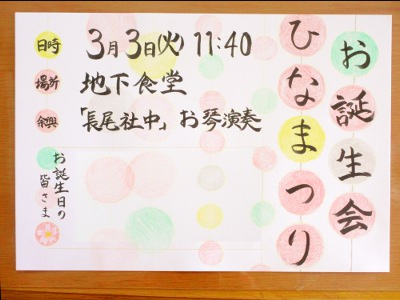 お誕生会
ひなまつり
日時 3月3日(火) 11:40
場所 地下食堂
余興 「長尾社中」お琴演奏
お誕生日の
皆さま